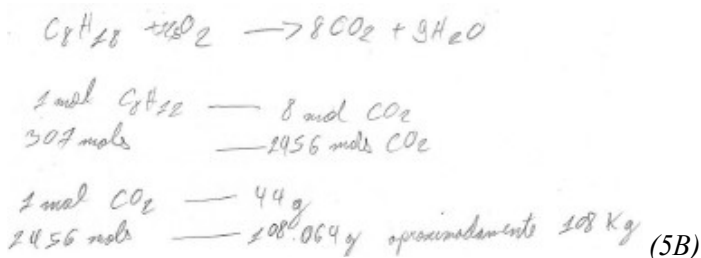 C8H18 + O2 —> 8CO2 + 9H2O
1 mol C8H12 — 8 mol CO2
307 mols — 2456 mols CO2
1 mol CO2 — 44g
2456 mols — 108.064g aproximadamente 108 Kg (5B)